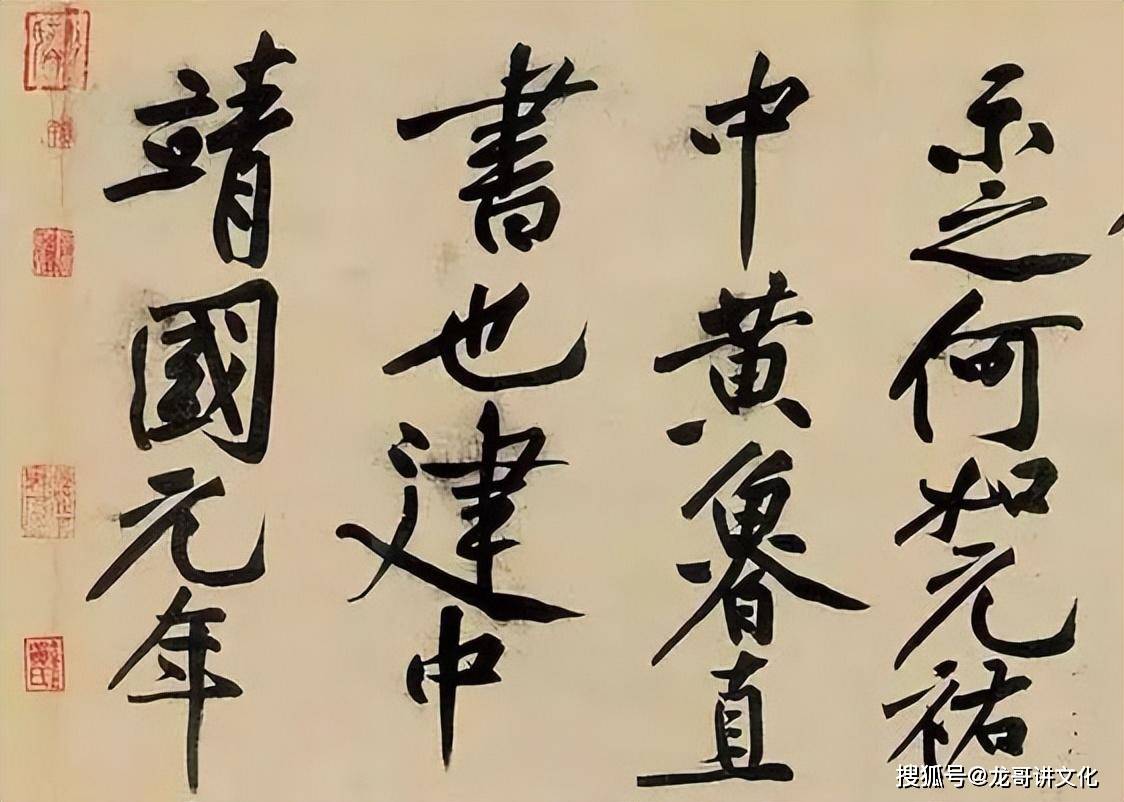 示之何如元祐
中黄魯直
書也建中
靖國元年
搜狐号@龙哥讲文化